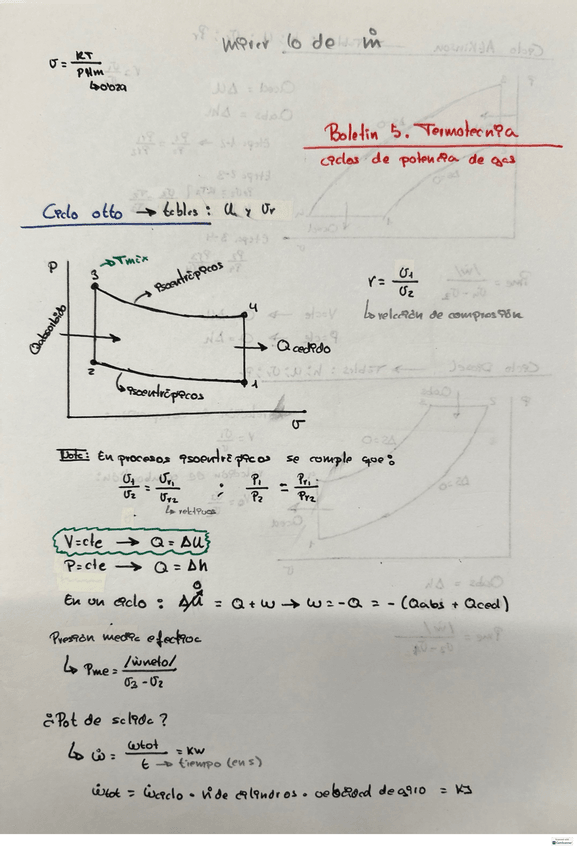 Mirar lo de ṁ
v = RT / P Mm
↳ 0'0289
Boletín 5. Termotecnia
ciclos de potencia de gas
Ciclo otto → tablas: u, y vr
P
3
→ Tmáx
isoentrópicos
4
Qabsorbido
Q cedido
2
isoentrópicos
1
v
r = v1 / v2
↳ relación de compresión
Nota: En procesos isoentrópicos se cumple que:
v1 / v2 = vr1 / vr2 ; P1 / P2 = Pr1 / Pr2
↳ relativos
V=cte → Q = ΔU
P=cte → Q = Δh
En un ciclo: ΔU⁰ = Q + w → w = -Q = - (Qabs + Qced)
Presión media efectiva
↳ Pme = /ẇneto/ / v3 - v2
¿Pot de salida?
↳ ẇ = wtot / t = kW
→ tiempo (en s)
ẇtot = ẇciclo · nº de cilindros · velocidad de giro = kJ